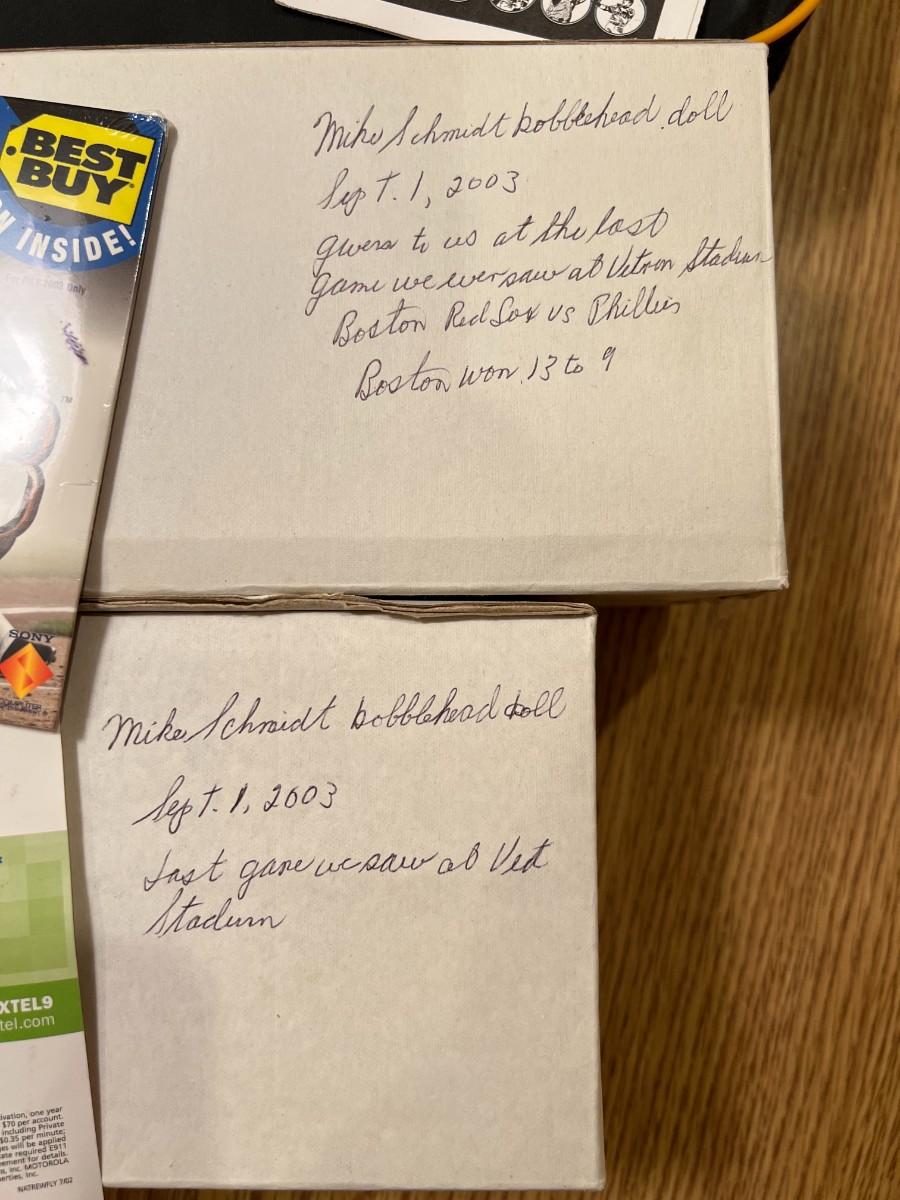 BEST
BUY
N INSIDE!
2003 Only
TM
SONY
COMPUTER
Mike Schmidt bobblehead doll
Sept. 1, 2003
given to us at the last
game we ever saw at Vetron Stadium
Boston Red Sox vs Phillies
Boston won 13 to 9
Mike Schmidt bobblehead doll
Sept. 1, 2003
Last game we saw at Vet
Stadium
XTEL9
tel.com
ivation, one year
$70 per account.
including Private
$0.35 per minute;
es will be applied
ate required E911
ement for details.
s, Inc. MOTOROLA
erties, Inc.
NATREWFLY 7/02